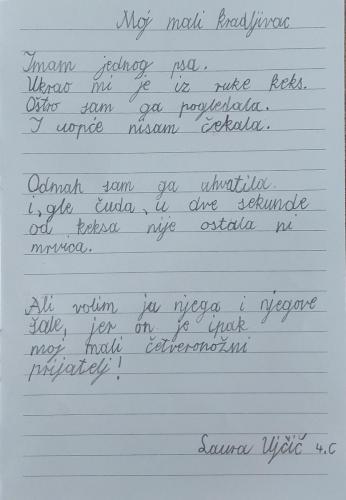 Moj mali kradljivac
Imam jednog psa.
Ukrao mi je iz ruke keks.
Oštro sam ga pogledala.
I uopće nisam čekala.
Odmah sam ga uhvatila
i, gle čuda, u dve sekunde
od keksa nije ostala ni
mrvica.
Ali volim ja njega i njegove
šale, jer on je ipak
moj mali četveronožni
prijatelj!
Laura Ujčić 4.C